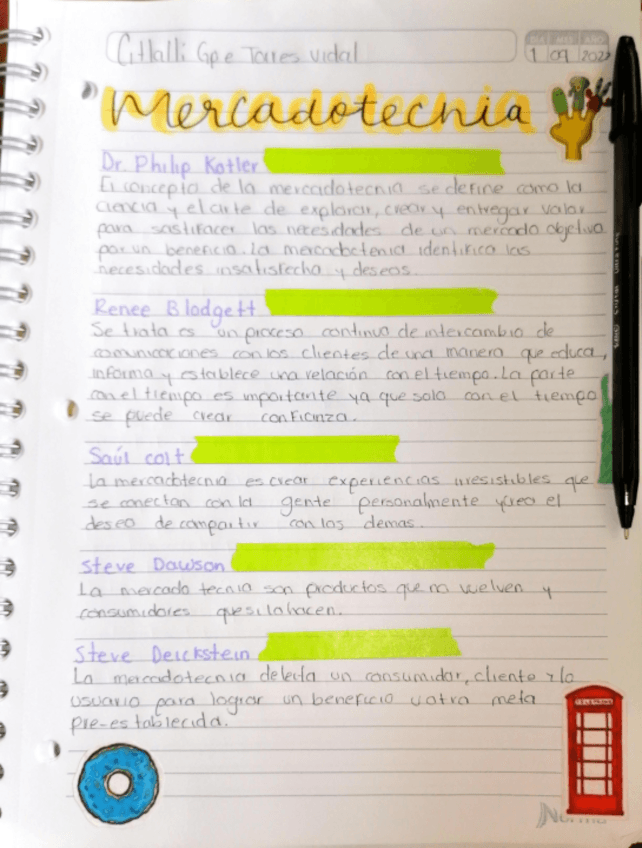 Citlalli Gpe Torres Vidal
DIA MES AÑO
1 09 202
Mercadotecnia
Dr. Philip Kotler
El concepto de la mercadotecnia se define como la
ciencia y el arte de explorar, crear y entregar valor
para sastifacer las necesidades de un mercado objetivo
por un beneficio. La mercadoctenia identifica las
necesidades insatisfecha y deseos.
Renee Blodgett
Se trata es un proceso continuo de intercambio de
comunicaciones con los clientes de una manera que educa,
informa y establece una relación con el tiempo. La parte
con el tiempo es importante ya que solo con el tiempo
se puede crear confianza.
Saúl colt
La mercadotecnia es crear experiencias irresistibles que
se conectan con la gente personalmente y crea el
deseo de compartir con los demas.
Steve Dawson
La mercadotecnia son productos que no vuelven y
consumidores que si lo hacen.
Steve Deickstein
La mercadotecnia deleita un consumidor, cliente y/o
usuario para lograr un beneficio u otra meta
pre-establecida.
TELEPHONE
Norma